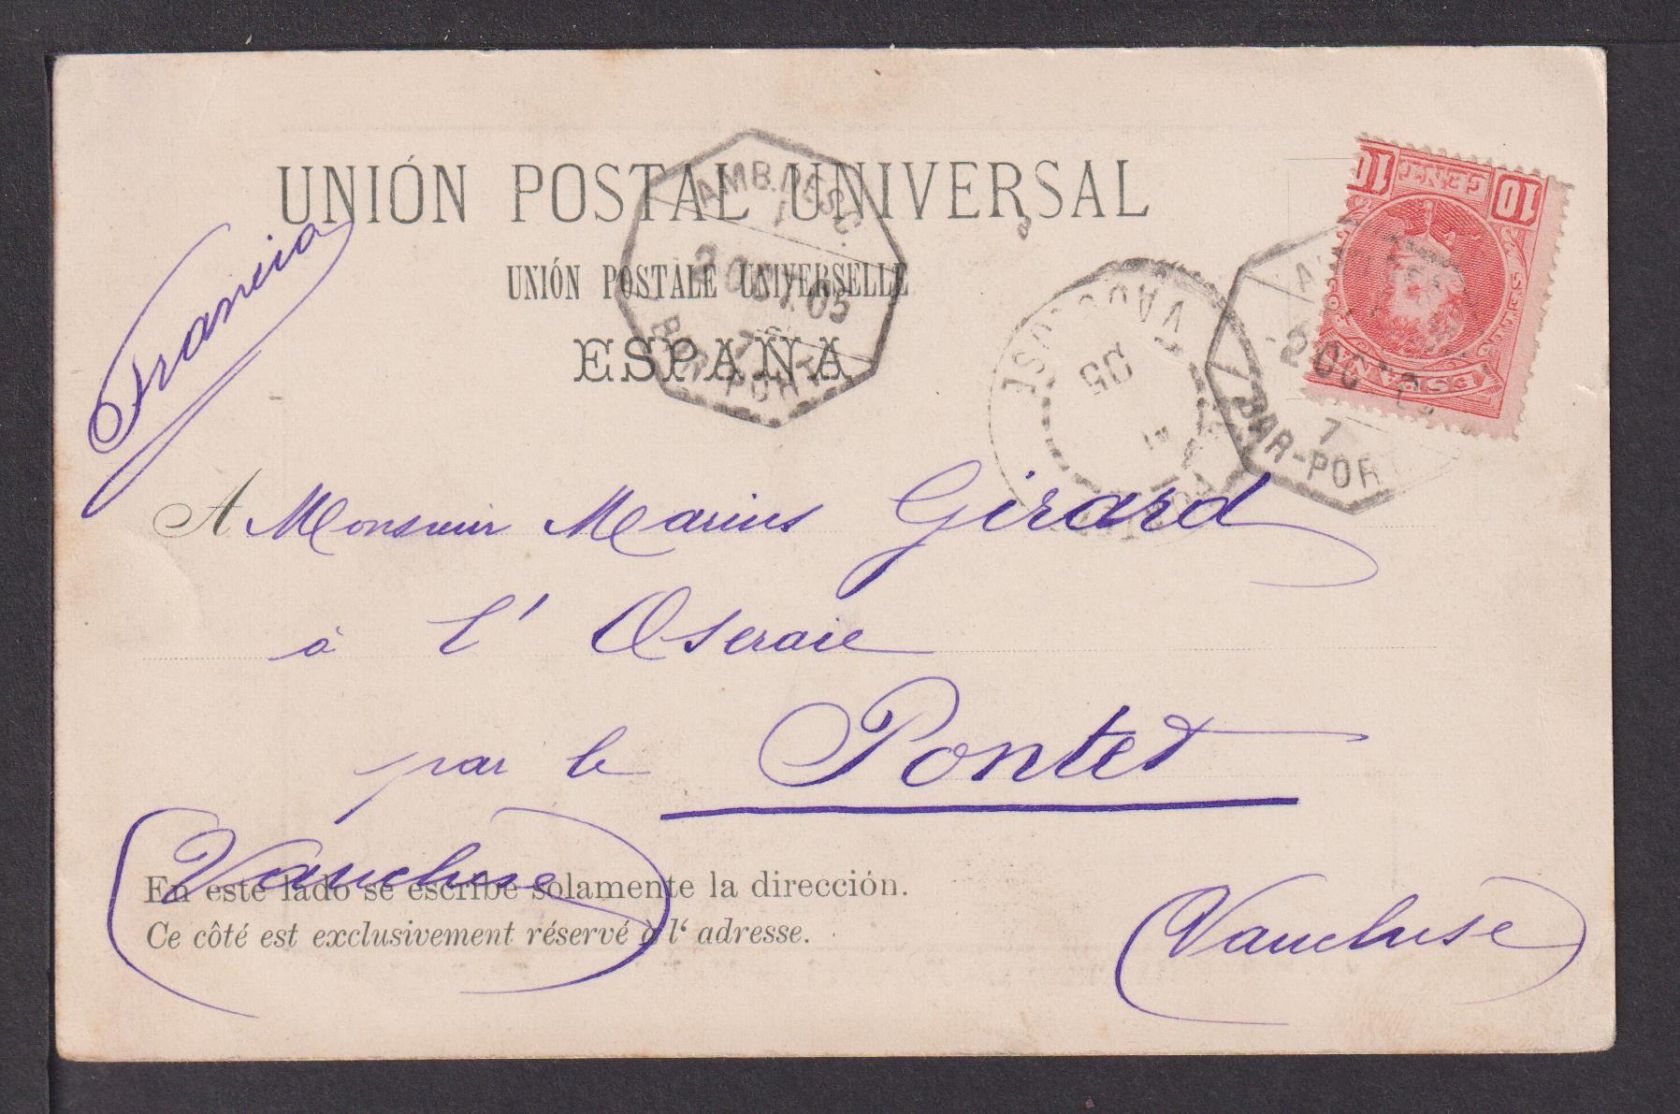 UNIÓN POSTAL UNIVERSAL
UNIÓN POSTALE UNIVERSELLE
ESPAÑA
Francia
AMB.DESC.
1
2 OCT.05
7
BAR-POR
VAUCLUSE
05
10 CENT 10
ESPAÑA
2 OCT
7
BAR-POR
A Monsieur Marius Girard
à l'Oseraie
par le Pontet
(Vaucluse)
(Vaucluse)
En este lado se escribe solamente la dirección.
Ce côté est exclusivement réservé à l'adresse.